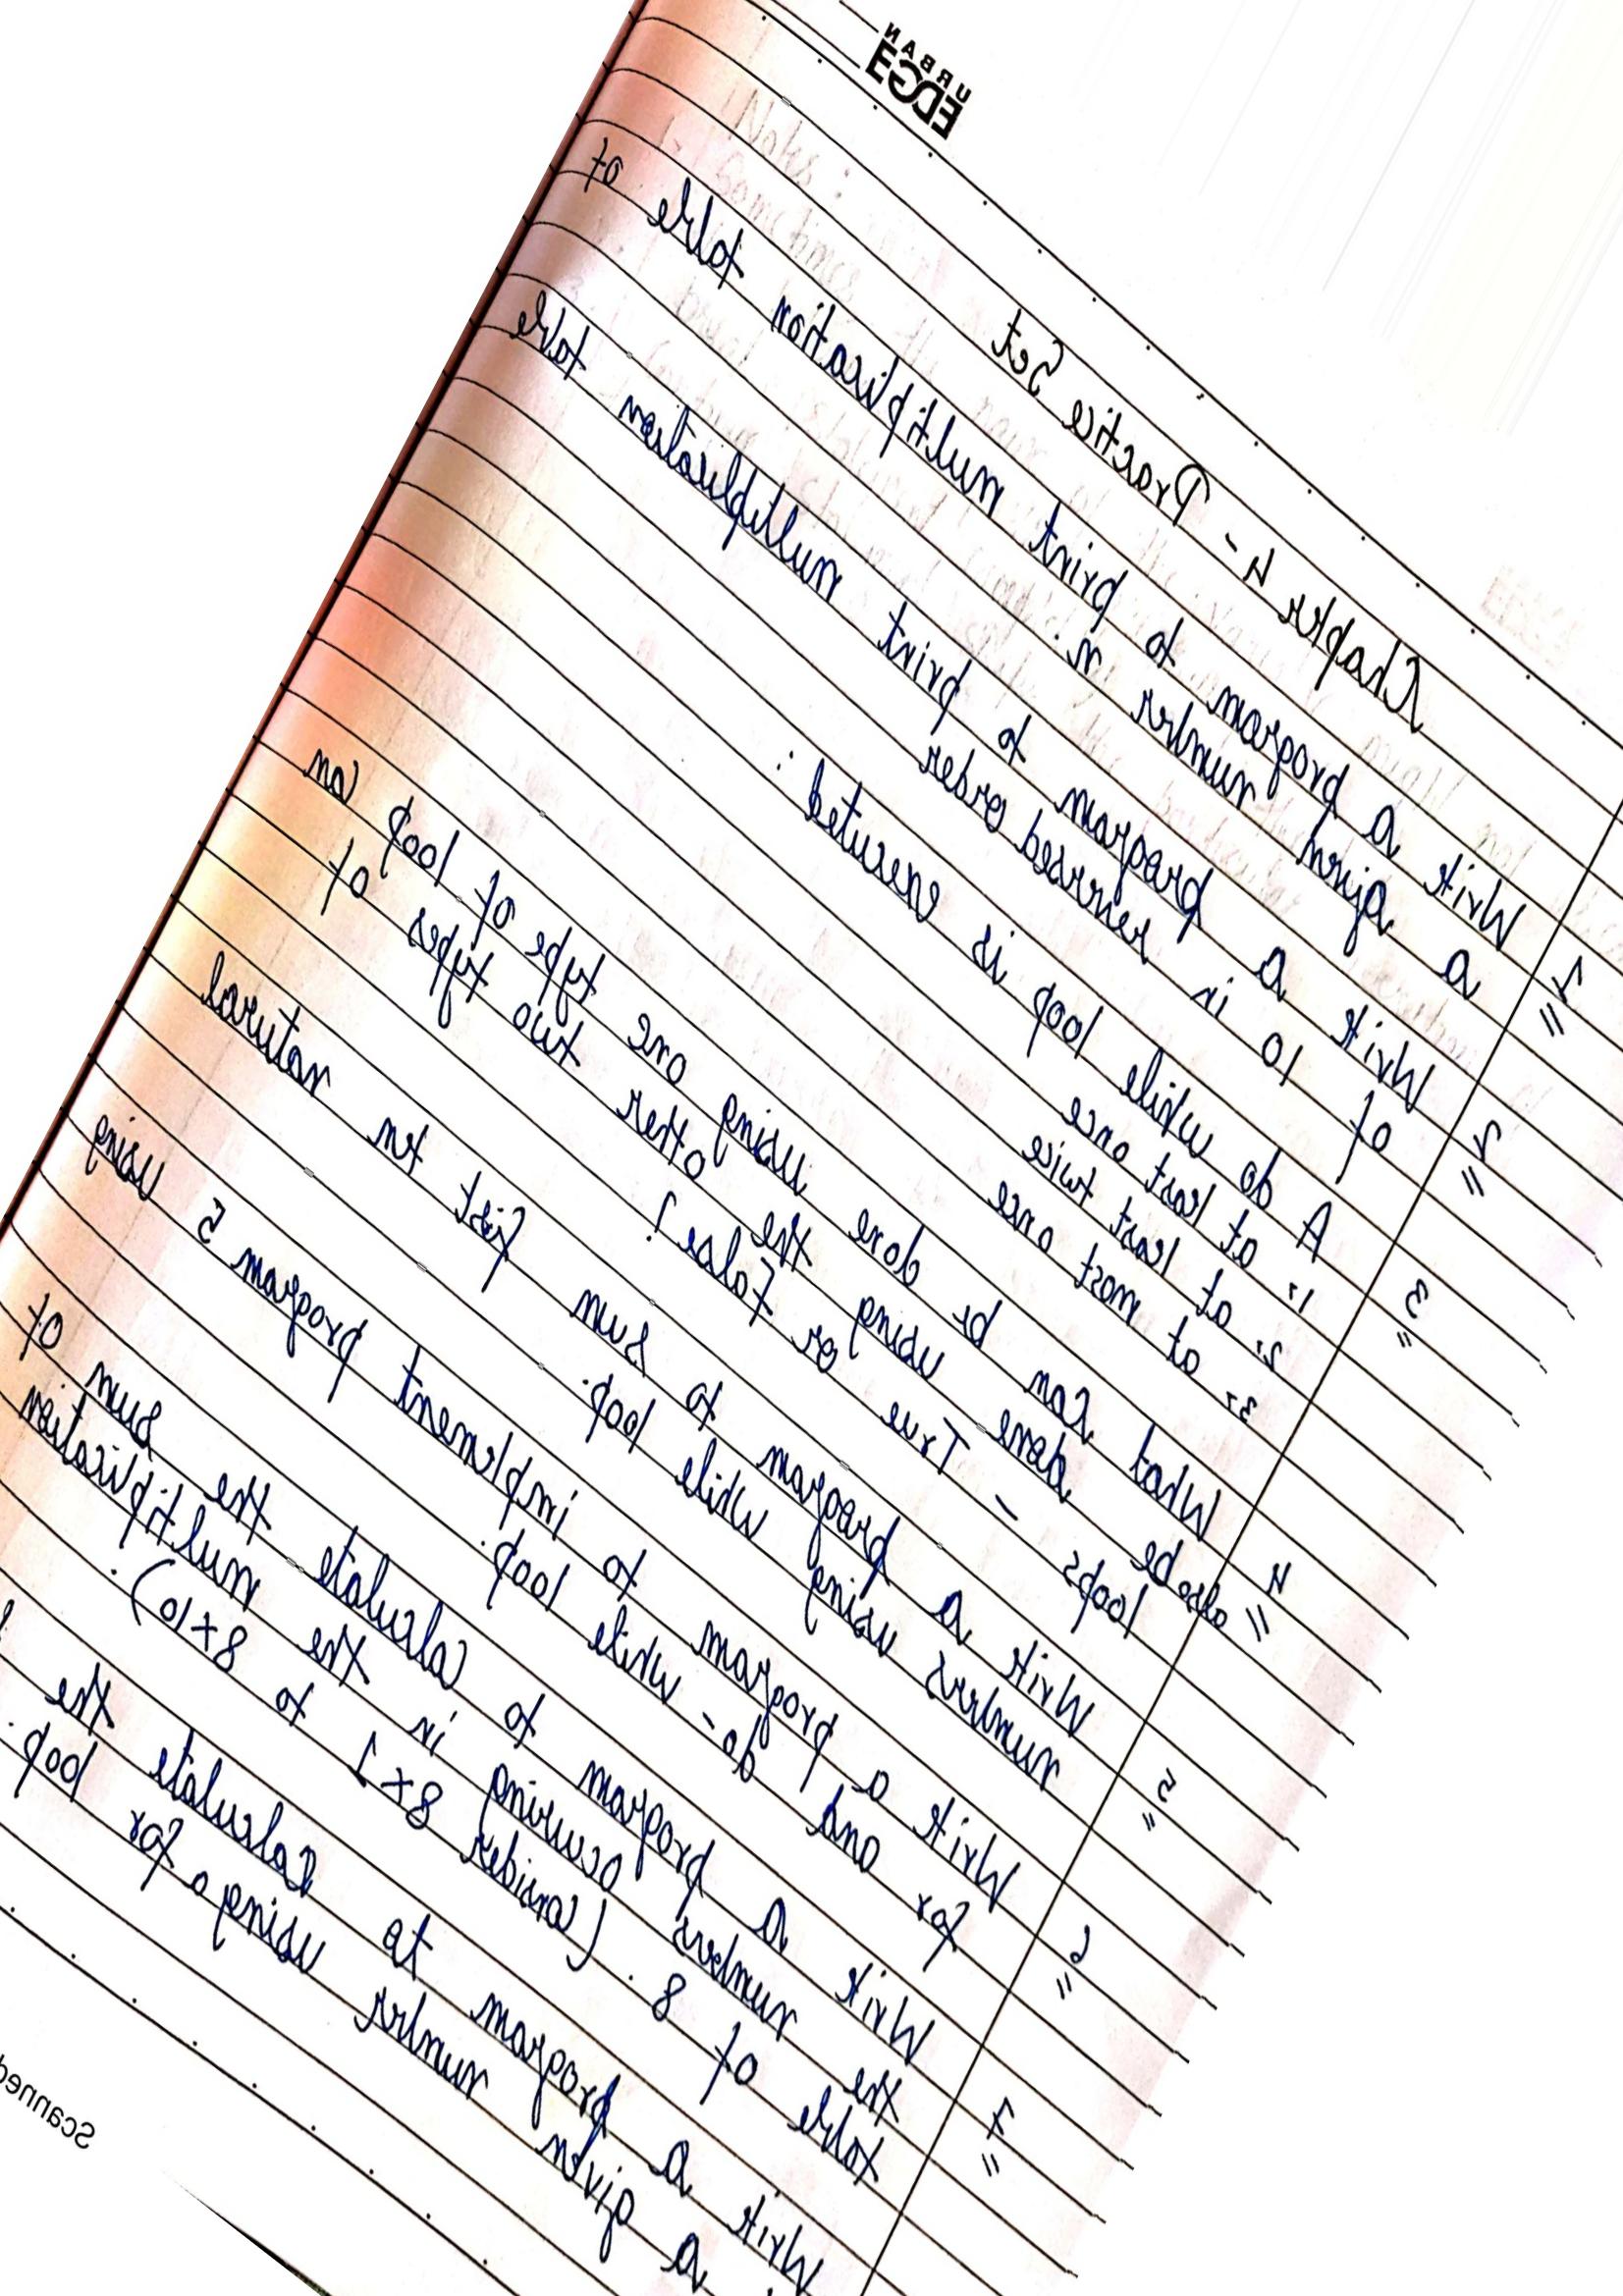 URBAN
EDGE
Chapter 4 - Practice Set
1 Write a program to print multiplication table of
a given number n.
2 Write a program to print multiplication table
of 10 in reversed order
3 A do while loop is executed :
1, at least once
2, at least twice
3, at most once
4 What can be done using one type of loop can
also be done using the other two types of
loops - True or False?
5 Write a program to sum first ten natural
numbers using while loop.
6 Write a program to implement program 5 using
for and do-while loop.
7 Write a program to calculate the sum of
the numbers occuring in the multiplication
table of 8. (consider 8×1 to 8×10).
Write a program to calculate the
a given number using a for loop.
Scanned